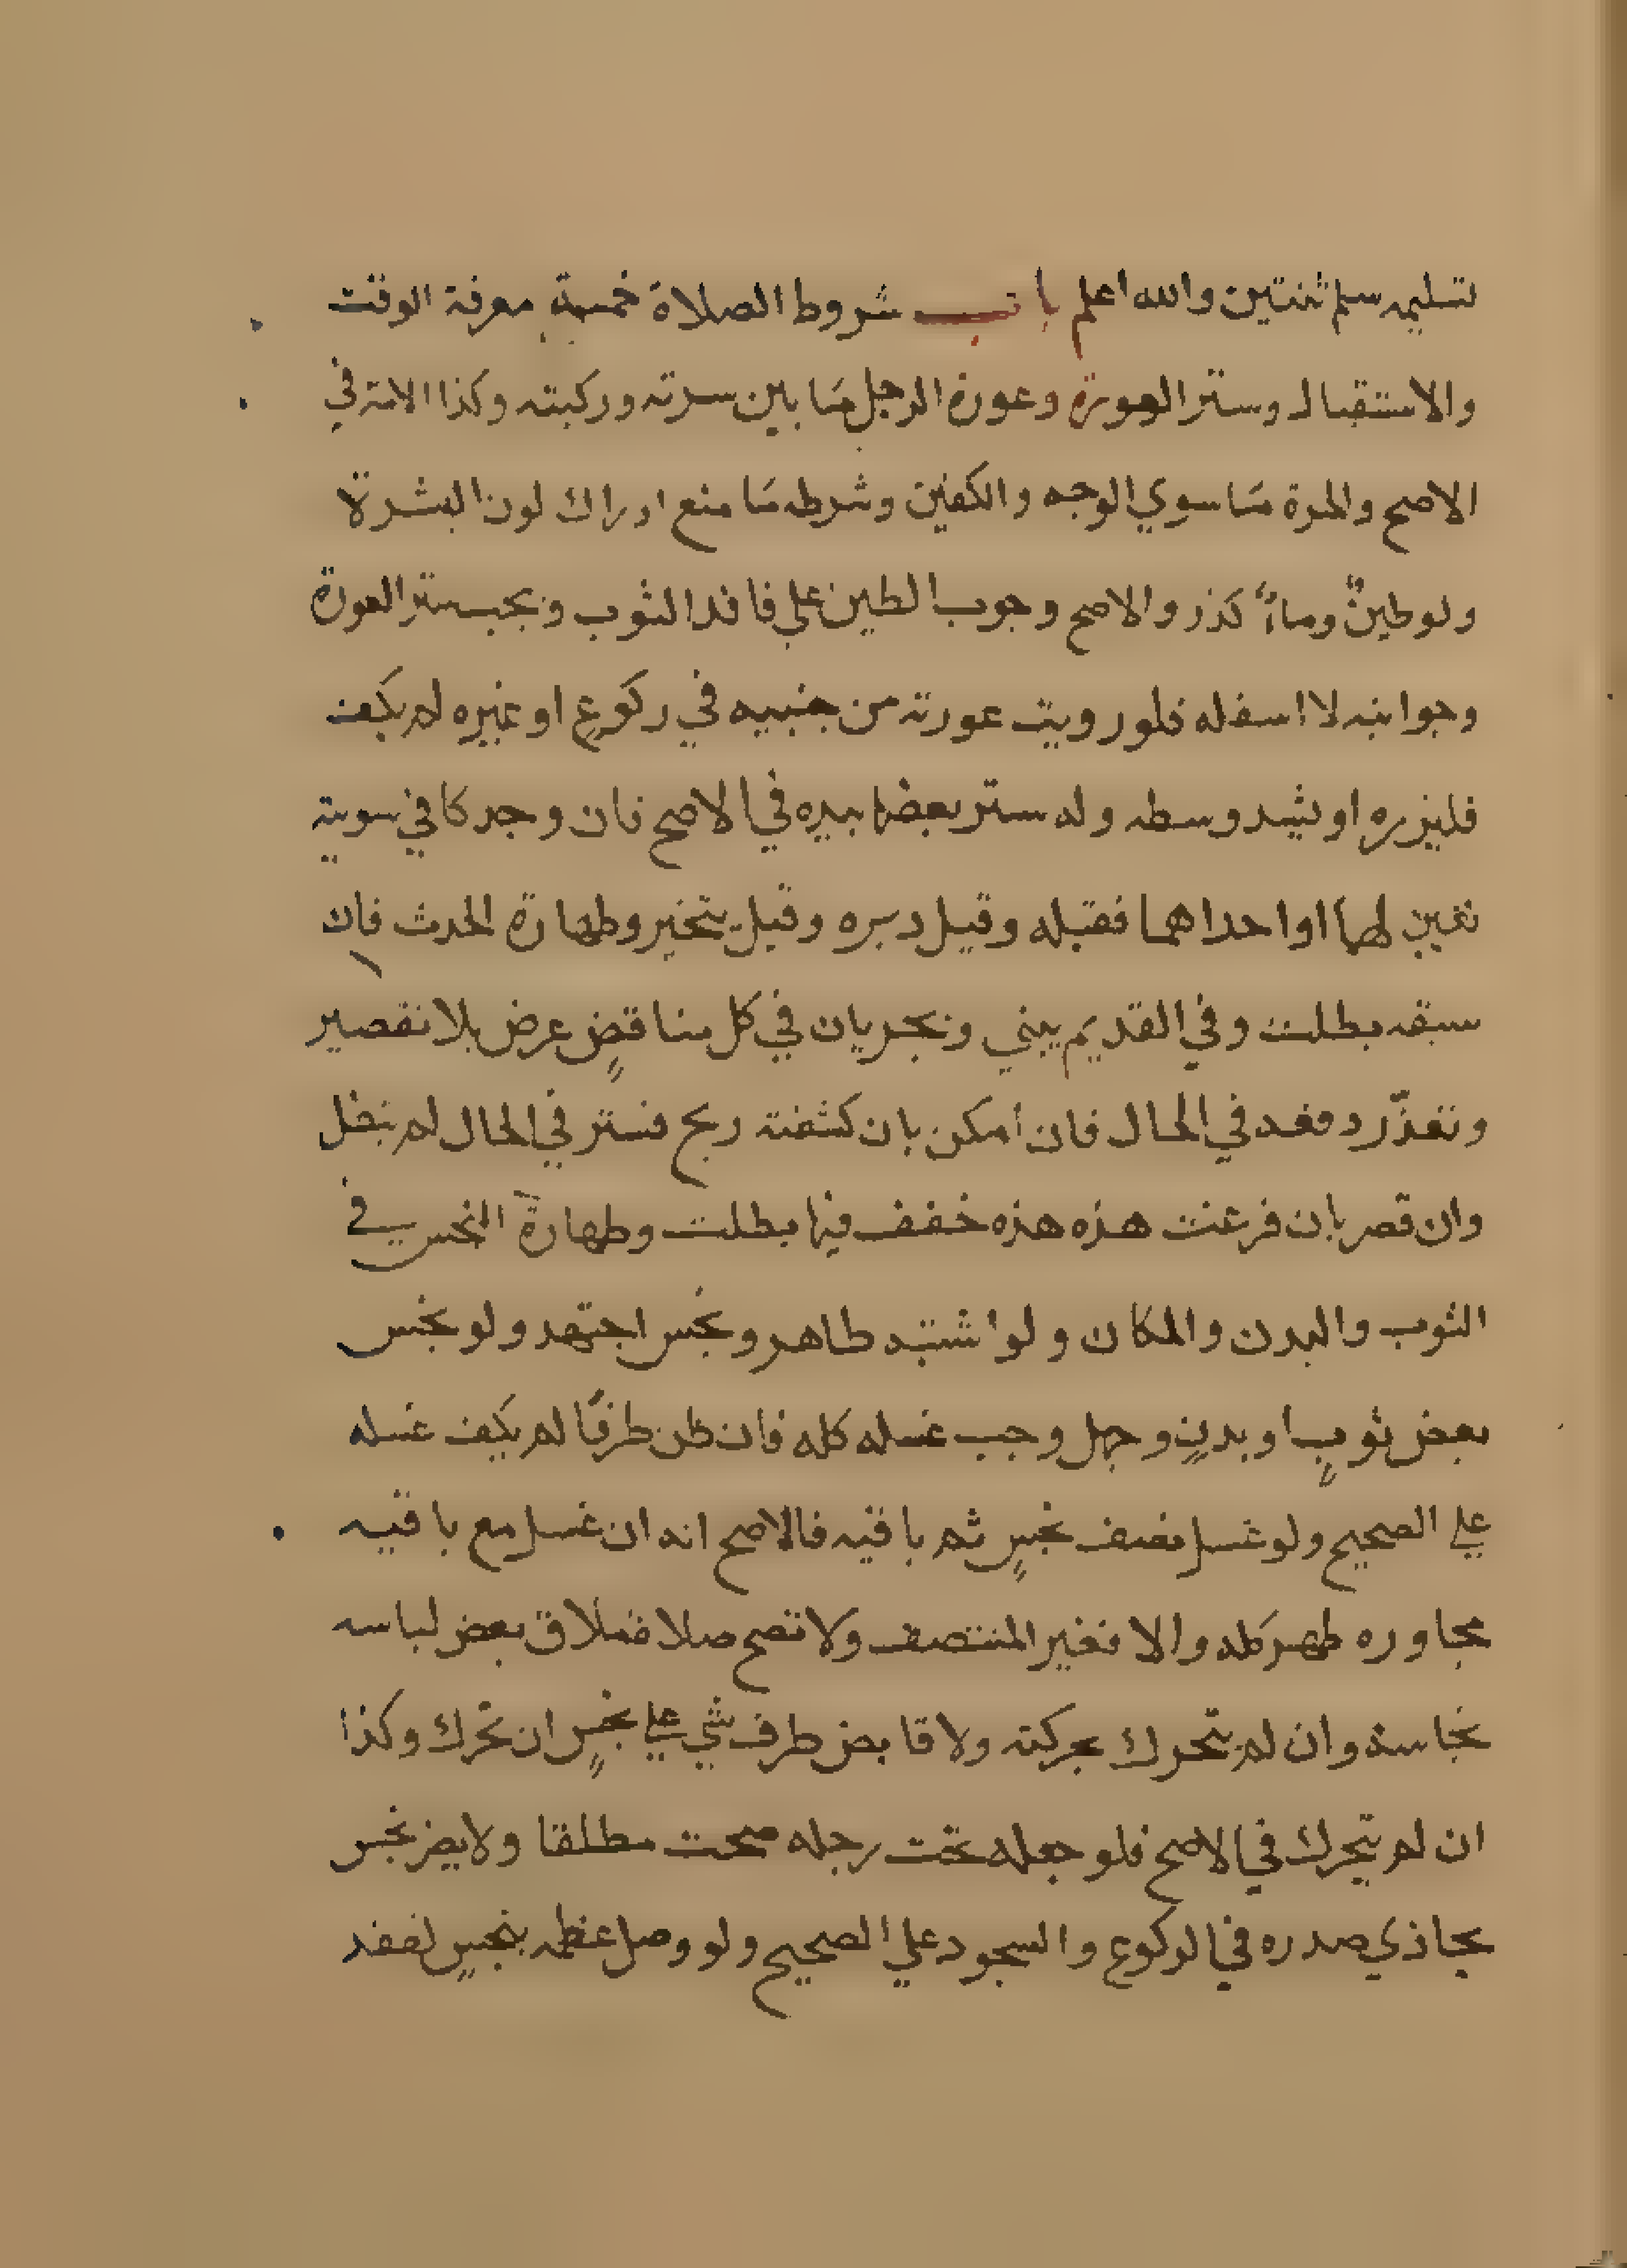 تسليمه سلم ثنتين والله اعلم باب شروط الصلاة خمسة معرفة الوقت
والاستقبال وستر العورة وعورة الرجل ما بين سرته وركبته وكذا الامة في
الاصح والحرة ما سوي الوجه والكفين وشرطه ما منع ادراك لون البشرة
ولو طينٌ وماءً كدر والاصح وجوب الطين علي فاقد الثوب ويجب ستر العورة
وجوانبه لا اسفله فلو رويت عورته من جنبيه في ركوع او غيره لم يكف
فليزره او يشد وسطه وله ستر بعضها بيده في الاصح فان وجد كافي سوتيه
تعين لهما او احداهما فقبله وقيل دبره وقيل يتخير وطهارة الحدث فان
سبقه بطلت وفي القديم يبني ويجريان في كل مناقضٍ عرض بلا تقصير
وتعذّر دفعه في الحال فان امكن بان كشفته ريح فستر في الحال لم تبطل
وان قصر بان فرغت هذه هذه خفف فيها بطلت وطهارة النجس في
الثوب والبدن والمكان ولو اشتبه طاهر ونجس اجتهد ولو نجس
بعض ثوبٍ او بدنٍ وجهل وجب غسله كله فان ظن طرفًا لم يكف غسله
علي الصحيح ولو غسل نصف نجسٍ ثم باقيه فالاصح انه ان غسل مع باقيه
مجاوره طهر كله والا فغير المنتصف ولا تصح صلاة ملاق بعض لباسه
نجاسة وان لم يتحرك بحركته ولا قابض طرف شي علي نجسٍ ان تحرك وكذا
ان لم يتحرك في الاصح فلو جعله تحت رجله صحت مطلقا ولا يضر نجس
يحاذي صدره في الركوع والسجود علي الصحيح ولو وصل عظمه بنجسٍ لفقد